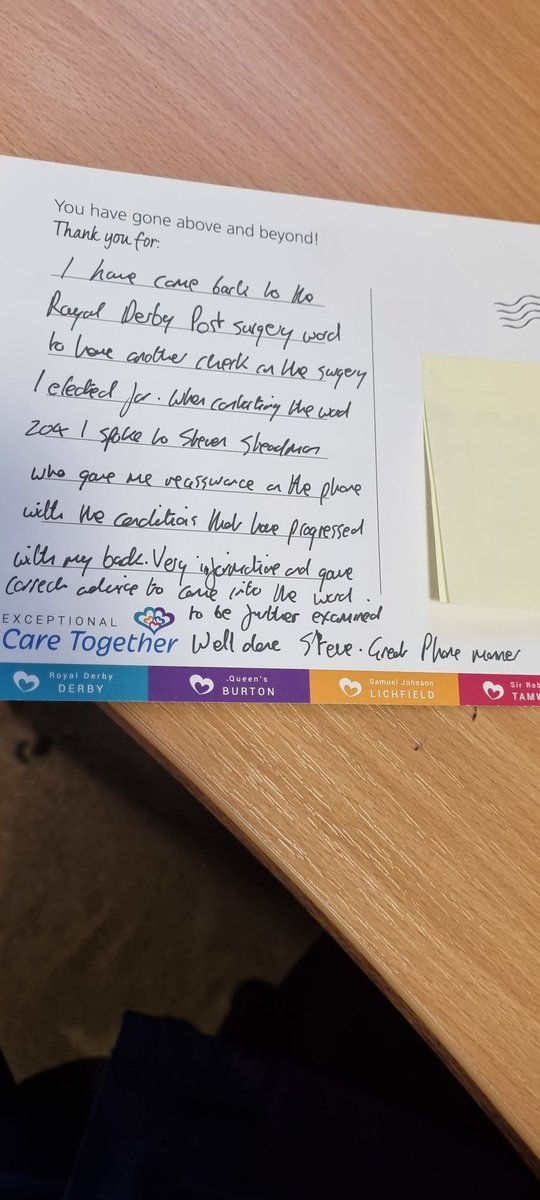 You have gone above and beyond!
Thank you for:
I have come back to the
Royal Derby Post surgery word
to have another check on the surgery
I elected for. When contacting the word
204 I spoke to Steven Steadman
who gave me reassurance on the phone
with the conditions that have progressed
with my back. Very informative and gave
correct advice to come into the word.
to be further examined
EXCEPTIONAL
Care Together
Well done Steve. Great Phone manner
Royal Derby
DERBY
.Queen's
BURTON
Samuel Johnson
LICHFIELD
Sir Rob
TAMW